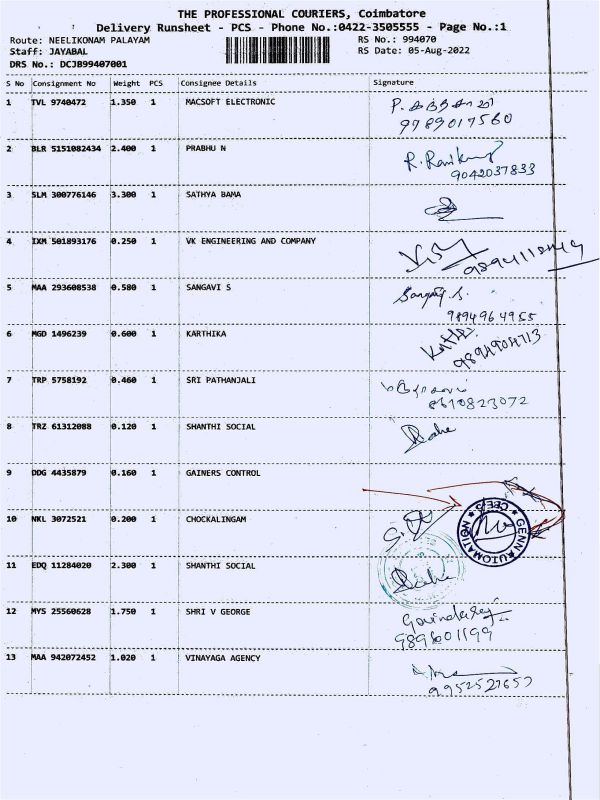 THE PROFESSIONAL COURIERS, Coimbatore
Delivery Runsheet - PCS - Phone No.:0422-3505555 - Page No.:1
Route: NEELIKONAM PALAYAM RS No.: 994070
Staff: JAYABAL RS Date: 05-Aug-2022
DRS No.: DCJB99407001
S No Consignment No Weight PCS Consignee Details Signature
1 TVL 9740472 1.350 1 MACSOFT ELECTRONIC
9789017560
2 BLR 5151082434 2.400 1 PRABHU N
9042037833
3 SLM 300776146 3.300 1 SATHYA BAMA
4 IXM 501893176 0.250 1 VK ENGINEERING AND COMPANY
5 MAA 293608538 0.580 1 SANGAVI S
Sangavi S.
9894964955
6 MGD 1496239 0.600 1 KARTHIKA
7 TRP 5758192 0.460 1 SRI PATHANJALI
8610823072
8 TRZ 61312088 0.120 1 SHANTHI SOCIAL
9 DDG 4435879 0.160 1 GAINERS CONTROL
10 NKL 3072521 0.200 1 CHOCKALINGAM
GENN AUTOMATION
11 EDQ 11284020 2.300 1 SHANTHI SOCIAL
12 MYS 25560628 1.750 1 SHRI V GEORGE
Govindaraj
9896601199
13 MAA 942072452 1.020 1 VINAYAGA AGENCY
9952527657